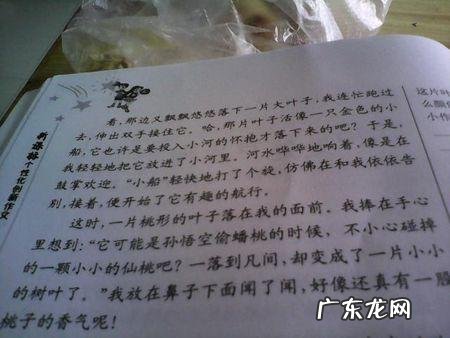 看,那边又飘飘悠悠落下一片大叶子,我连忙跑过
去,伸出双手接住它。哈,那片叶子活像一只金色的小
船,它也许是要投入小河的怀抱才落下来的吧?于是,
我轻轻地把它放进了小河里。河水哗哗地响着,像是在
鼓掌欢迎。“小船”轻快地打了个旋,仿佛在和我依依告
别,接着,便开始了它有趣的航行。
这时,一片桃形的叶子落在我的面前。我捧在手心
里想到:“它可能是孙悟空偷蟠桃的时候,不小心碰掉
的一颗小小的仙桃吧?一落到凡间,却变成了一片小小
的树叶了。”我放在鼻子下面闻了闻,好像还真有一股
桃子的香气呢!
新课标个性化创新作文
这片叶
么飘
小作
广东龙网